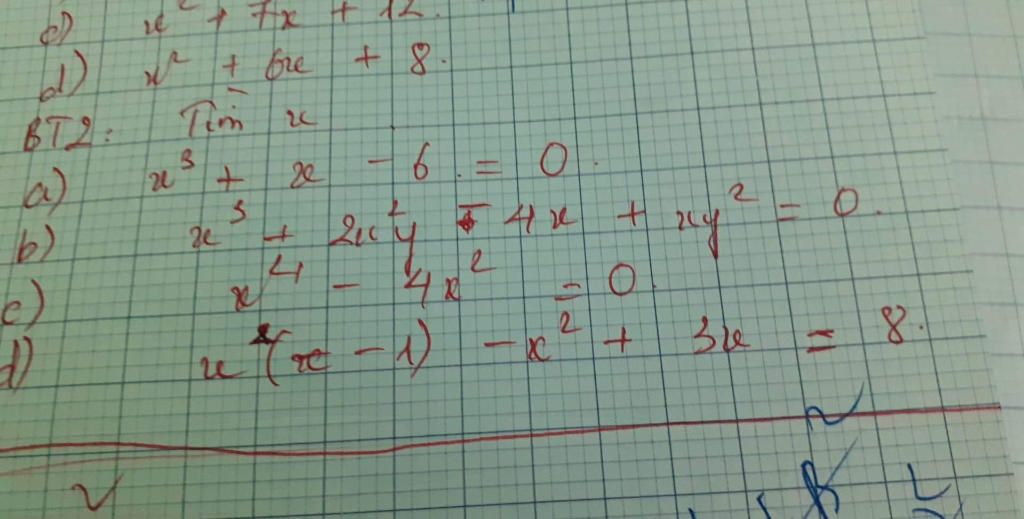 c) x² + 7x + 12.
d) x² + 6x + 8.
BT2: Tìm x
a) x³ + x - 6 = 0.
b) x³ + 2x²y - 4x + xy² = 0.
c) x⁴ - 4x² = 0.
d) x²(x - 1) - x² + 3x = 8.